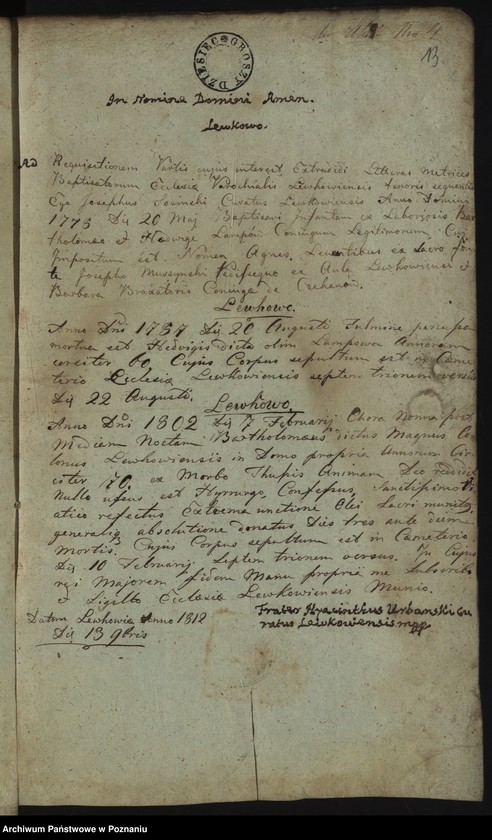 13
DZIESIEC GROSZY
In Nomine Domini Amen.
Lewkowo.
Ad Requisitionem Partis cujus interest Extradidi Litteras Metrices
Baptisatorum Ecclesiæ Parochialis Lewkowiensis tenoris sequentis
Ego Josephus Curatus Lewkowiensis Anno Domini
1773 Die 20 Maj Baptisavi Infantem ex Laboriosis Bar
tholomeo et Hedwige Lampów Conjugum Legitimorum. Cui
Impositum est Nomen Agnes, Levantibus ex Sacro Fon
te Josepho Muszynski Pedisequo ex Aula Lewkowiensi et
Barbara Braxatoris Conjuge de Czekanow.
Lewkowo.
Anno Dni 1787 Die 20 Augusti Fulmine percussa
mortua est Hedvigis dicta olim Lampowa Annorum
circiter 60 Cujus Corpus sepultum est in Cæme
terio Ecclesiæ Lewkowiensis septem trionem versus
Die 22 Augusti.
Lewkowo.
Anno Dni 1802 Die 7 Februarij Chora Nona post
Mediam Noctem Bartholomæus dictus Magnus Co
lonus Lewkowiensis in Domo propria Annorum Cir
citer 70. ex Morbo Thussis Animam Deo reddidit
Nullo usus est Hyrurgo, Confessus, Sanctissimo Vi
atico refectus Extrema unctione Olei Sacri munitus
generali absolutione donatus Die tres ante diem
Mortis. Cujus Corpus sepultum est in Cæmeterio
Die 10 Februarij Septem trionem versus. In Cujus
rei Majorem fidem Manu propria me Subscribo
et Sigillo Ecclesiæ Lewkowiensis Munio.
Datum Lewkowiæ Anno 1812
Die 13 9bris
Frater Hyacinthus Urbanski Cu
ratus Lewkowiensis mpp
Archiwum Państwowe w Poznaniu